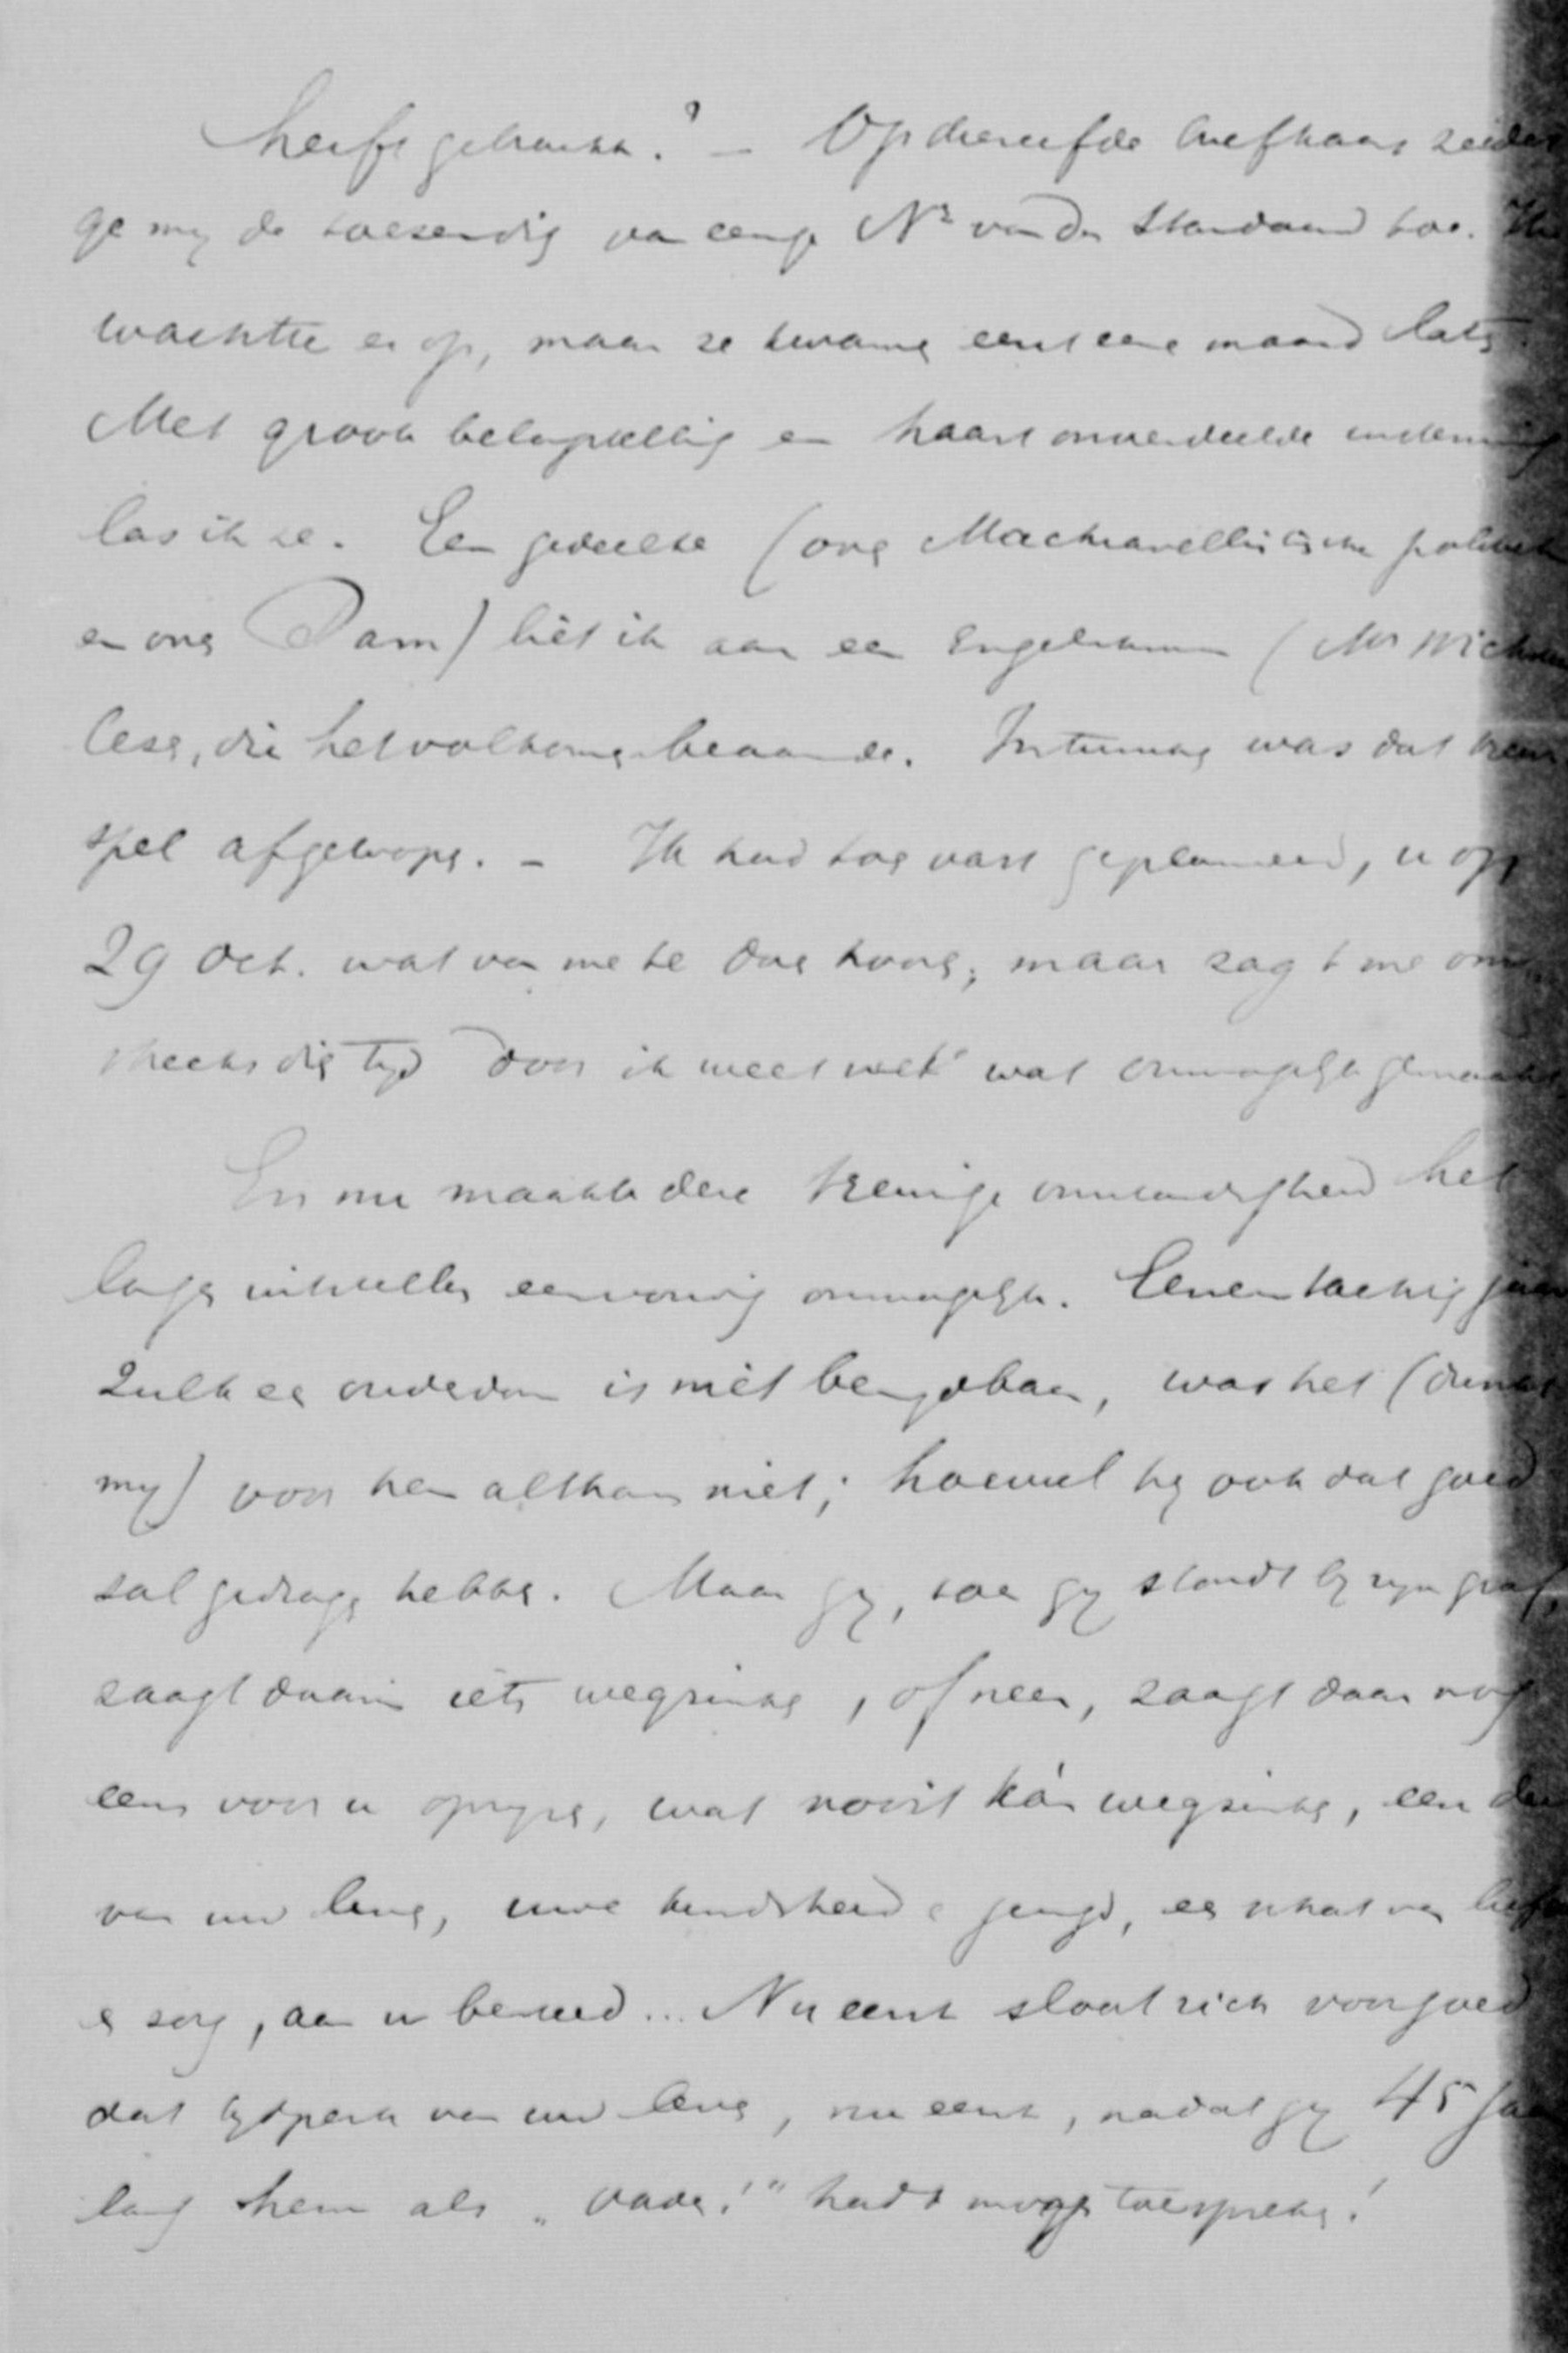 heeft gebracht? — Op diezelfde briefkaart zeidet
ge mij de toezending van eenige Nrs van de Standaard toe. Ik
wachtte er op, maar ze kwamen eerst eene maand later.
Met groote belangstelling en haast onverdeelde instemming
las ik ze. Een gedeelte (over Machiavellistische politiek
en over Pam) liet ik aan een Engelschman (Mr
lezen, die het volkomen beaamde. Intusschen was dat
spel afgeloopen. — Ik had toen vast geplanned, u op
29 Oct. wat van me te doen hooren; maar zag 't me
slechts dien tijd door ik weet niet wat onmogelijk gemaakt
En nu maakte deze treurige omstandigheid het
langer uitstellen eenvoudig onmogelijk. Eenentachtig jaar
Zulk een ouderdom is niet benijdbaar, was het (dunkt
mij) voor hem althans niet; hoewel hij ook dat goed
zal gedragen hebben. Maar gij, toen gij stondt bij zijn graf,
zaagt daarin iets wegzinken, of neen, zaagt daar nog
eens voor u oprijzen, wat nooit kán wegzinken, een deel
van uw leven, uwe kindsheid en jeugd, een schat van liefde
en zorg, aan u besteed... Nu eerst sloot zich voorgoed
dat tijdperk van uw leven, nu eerst, nadat gij 45 jaar
lang hem als „Vader!" hadt mogen toespreken!